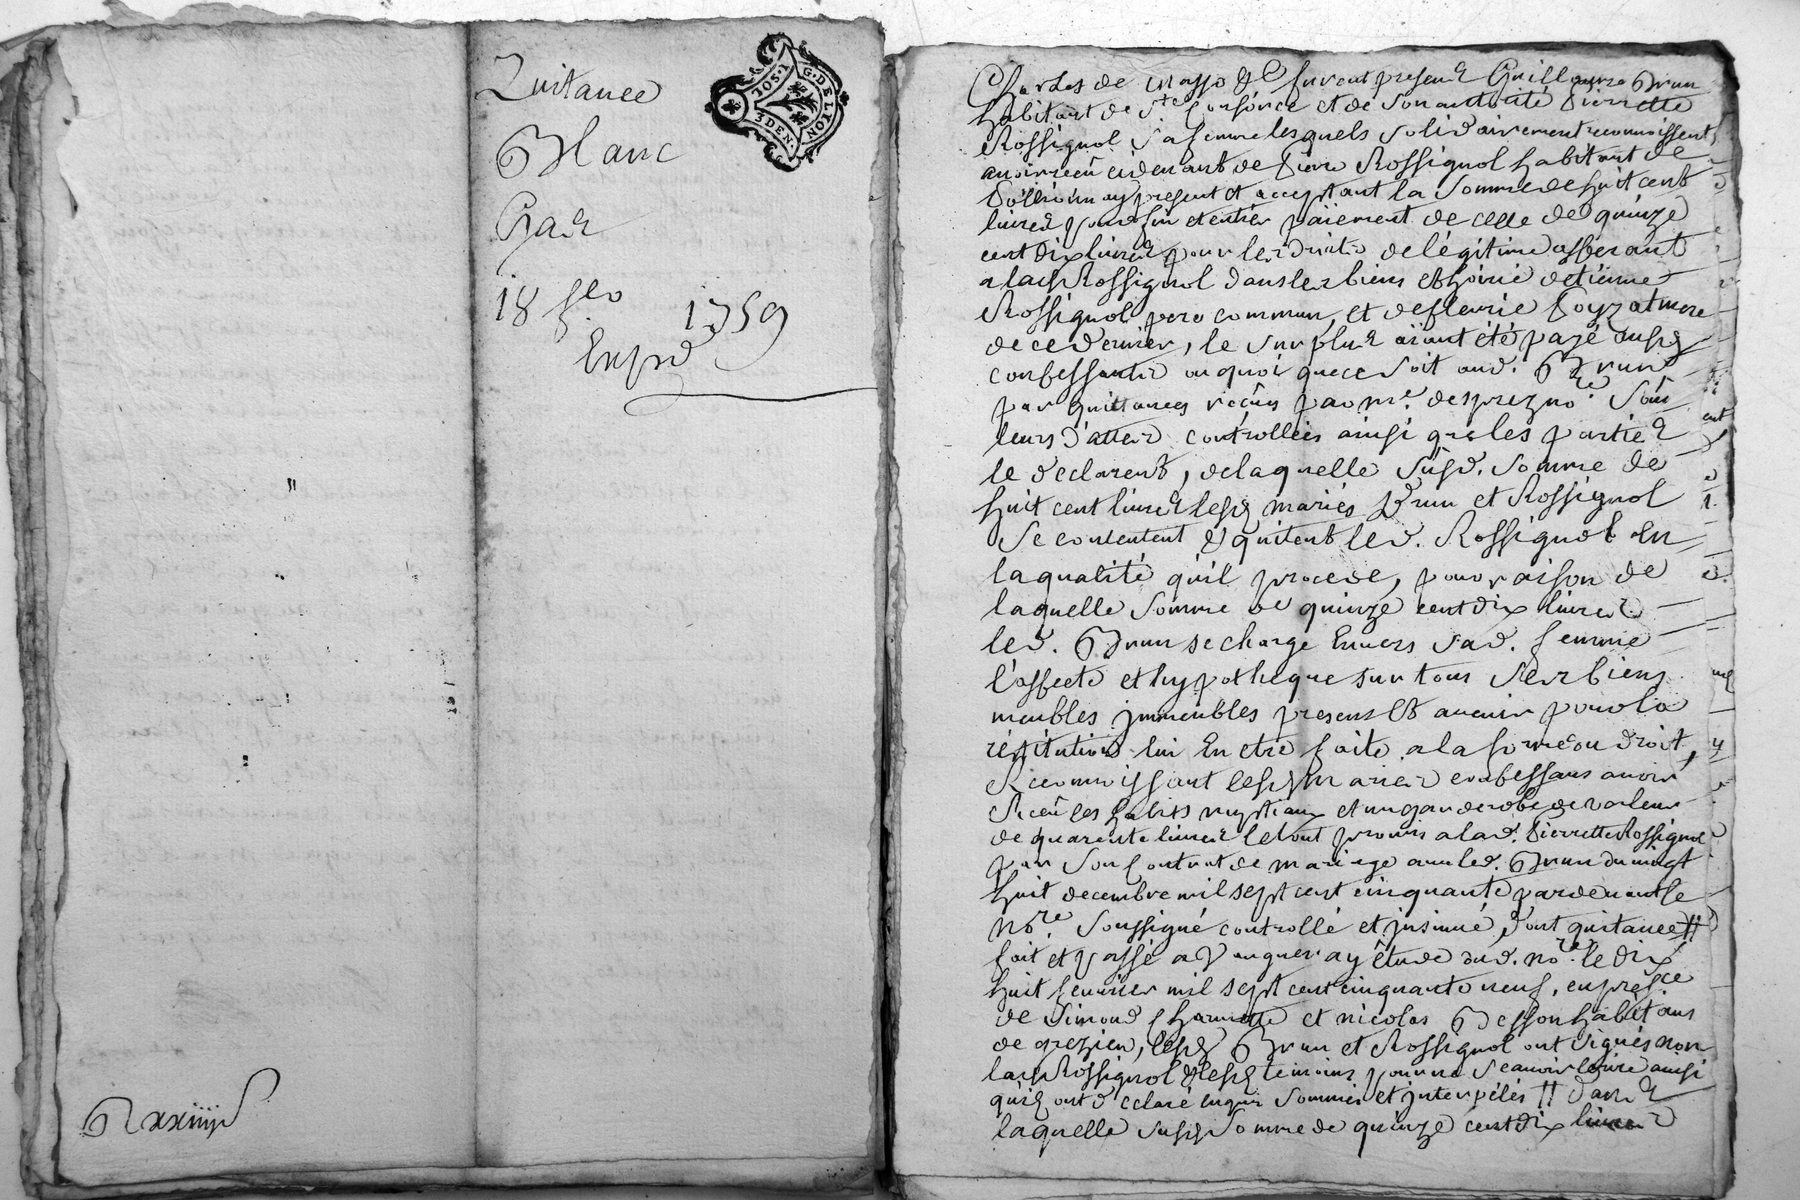 Quitance
Blanc
18 feb. 1759
Exped
G. DE LYON
3 DEN.
furent presens Guillaume Brun
habitant de Ste Consorce et de son autorité Pierrette
Rossignol sa femme lesquels solidairement reconnoissent
avoir reçû cidevant de Pierre Rossignol habitant de
Pollionnay present et acceptant la somme de huit cent
livres pour fin et entier païement de celle de quinze
cent dix livres pour les droits de légitime afferant
a lad. Rossignol dans les biens et hoirie detienne
Rossignol pere commun, et de fleurie Poyzat mere
de ce dernier, le surplus aïant été payé ausd.
confessants ou quoi que ce soit aud. Brun
par quittances reçûes par me. desprez nore. Soûs
leurs dattes controllées ainsi que les parties
le declarent, de laquelle susd. somme de
huit cent livres lesd. mariés Brun et Rossignol
se contentent & quitent led. Rossignol en
la qualité qu'il procede, pour raison de
laquelle somme de quinze cent dix livres
led. Brun se charge Envers sad. femme
l'affecte et hypotheque sur tous ses biens
meubles immeubles presens et avenir pour la
réstitution lui En etre faite a la forme du droit,
Reconnoissant lesd. mariés confessans avoir
Reçû les habits nuptiaux et un garderobe de valeur
de quarente livres le tout promis a lad. Pierrette Rossignol
par son contrat de mariage avec led. Brun du vingt
huit decembre mil sept cent cinquante pardevant le
nore. soussigné controllé et insinué, dont quitance #
fait et passé a Vaugneray étude dud. nore. le dix
huit fevrier mil sept cent cinquante neuf, en presce
de Simond et nicolas Besson habitans
de grezieu, lesd. Brun et Rossignol ont signés non
lad. Rossignol & lesd. temoins pour ne scavoir écrire ainsi
qu'ils ont declaré enquis sommés et interpélés # dans
laquelle susd. somme de quinze cent dix livres